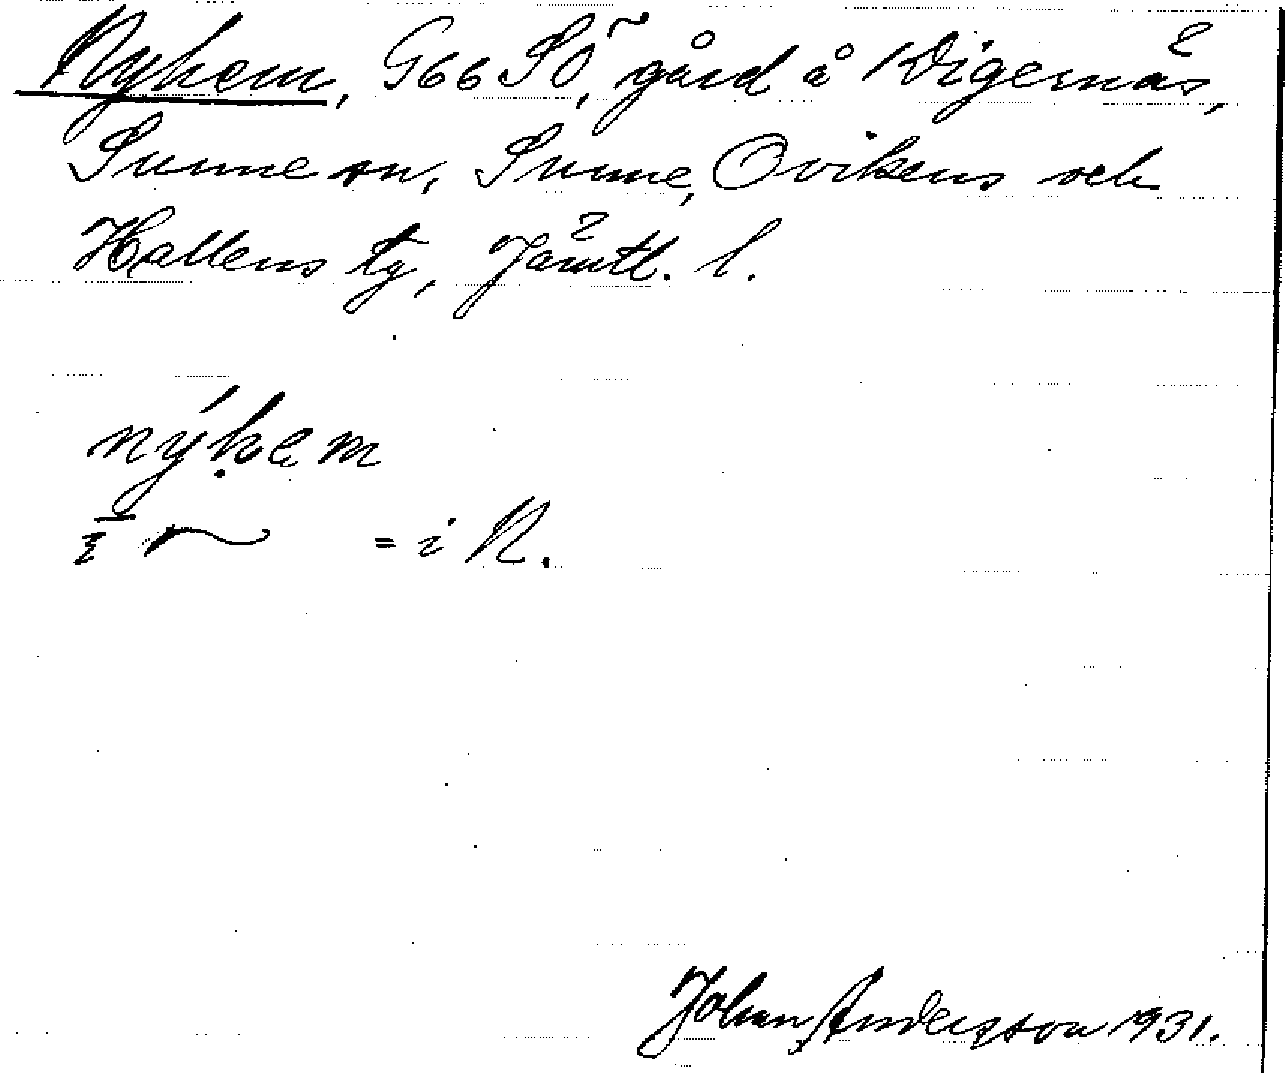 Nyhem, G66 SÖ, gård å Digernäs,
Sunne sn, Sunne, Ovikens och
Hallens tg, Jämtl. l.
nýhem
= i N.
Johan Andersson 1931.